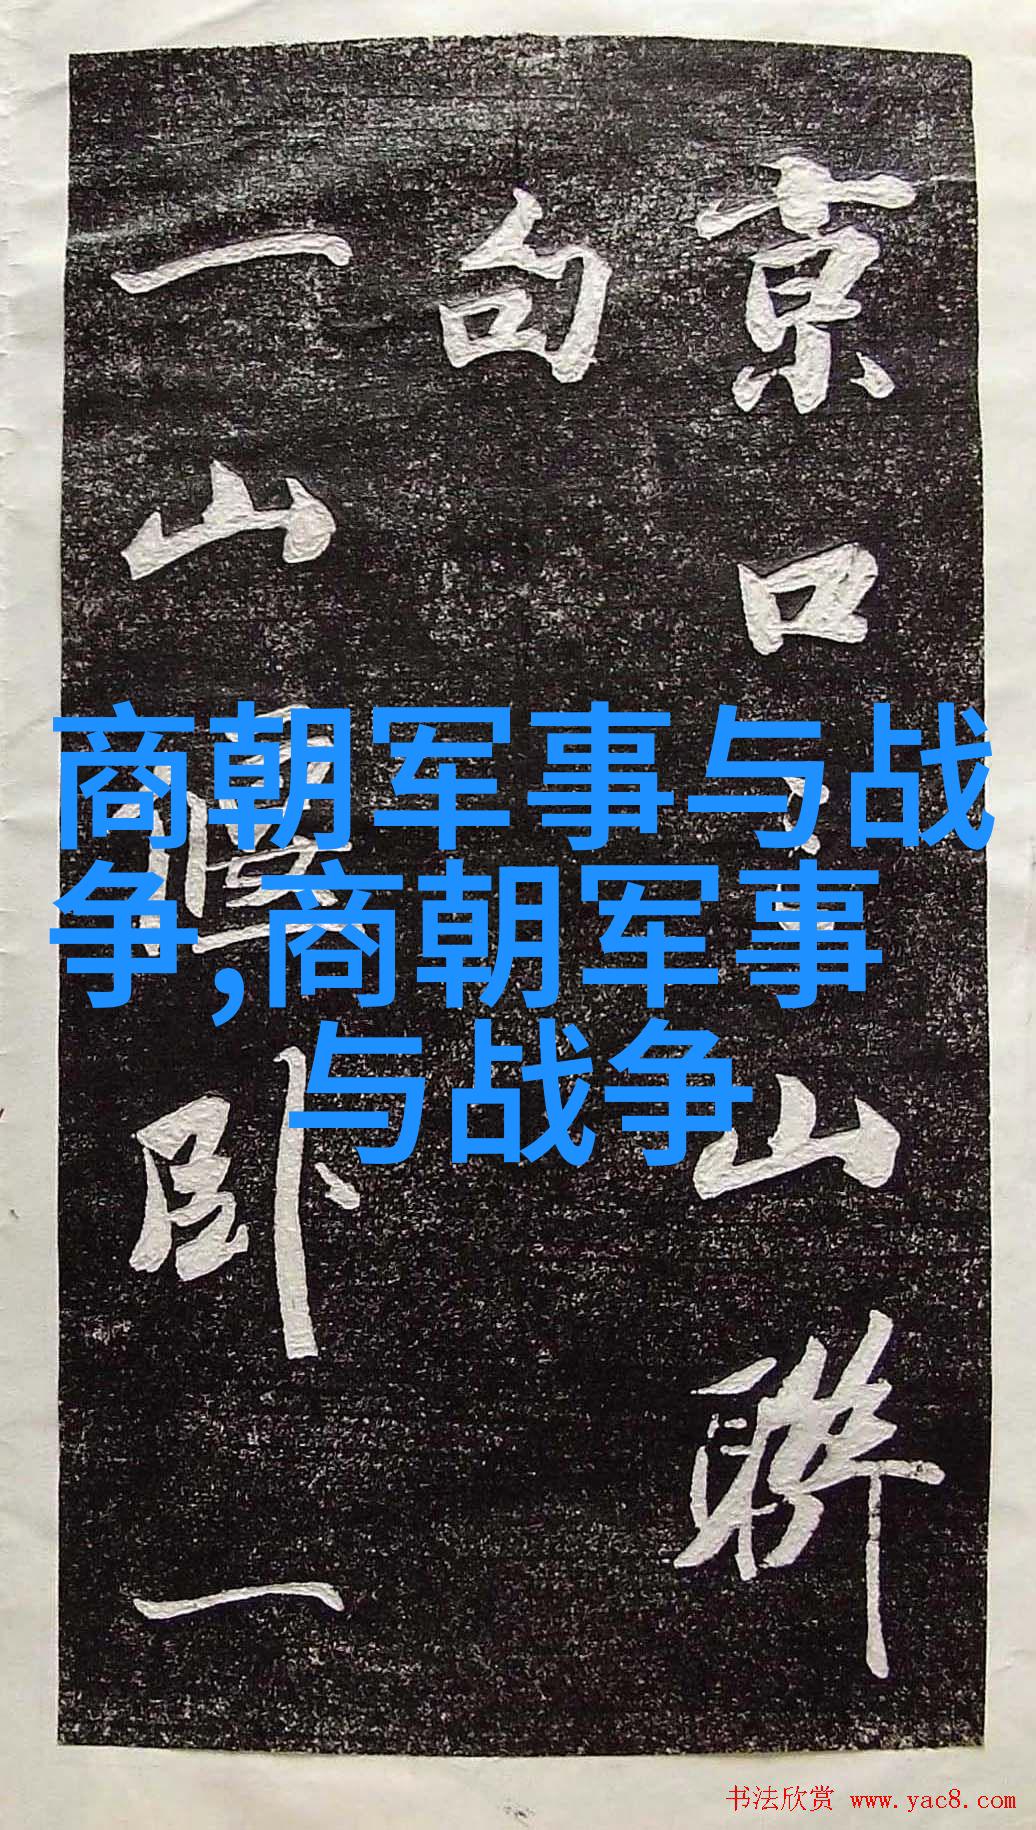 京口山聯
句
一山卧一
商朝军事与战
争,商朝军事
与战争
书法欣赏 www.yac8.com